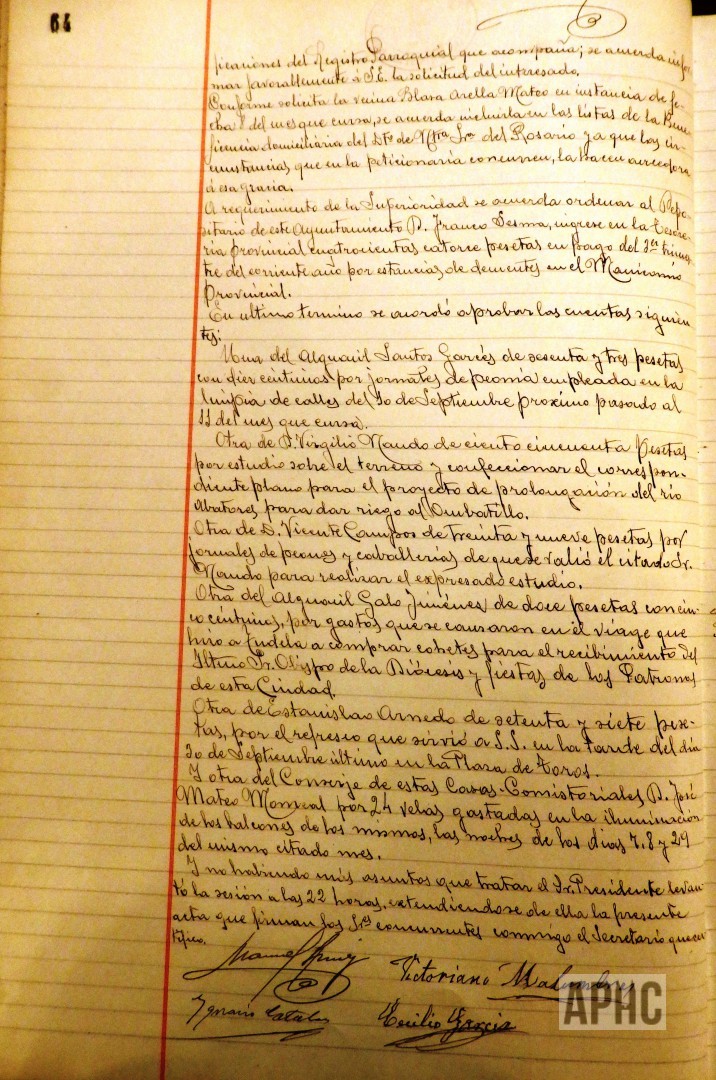 64
ficaciones del Registro Parroquial que acompaña; se acuerda infor
mar favorablemente á S.E. la solicitud del interesado.
Conforme solicita la vecina Blasa Arella Mateo en instancia de fe
cha del mes que cursa, se acuerda incluirla en las listas de la Bene
ficencia domiciliaria del Dto. de Ntra Sra del Rosario ya que las cir
cunstancias que en la peticionaria concurren, la hacen acreedora
á esa gracia.
A requerimiento de la Superioridad se acuerda ordenar al Depo
sitario de este Ayuntamiento D. Franco Sesma, ingrese en la Tesore
ria Provincial cuatrocientas catorce pesetas en pago del 3er trimes
tre del corriente año por estancias de dementes en el Manicomio
Provincial.
En ultimo termino se acordó aprobar las cuentas siguien
tes:
Una del Alguacil Santos Garcés de sesenta y tres pesetas
con diez centimos por jornales de peonía empleada en la
limpia de calles del 30 de Septiembre proximo pasado al
11 del mes que cursa.
Otra de D. Virgilio Nando de ciento cincuenta Pesetas
por estudio sobre el terreno y confeccionar el correspon
diente plano para el proyecto de prolongación del rio
Abatores para dar riego al Ombatillo.
Otra de D. Vicente Campos de treinta y nueve pesetas por
jornales de peones y caballerías de que se valió el citado Sr.
Nando para realizar el expresado estudio.
Otra del Alguacil Galo Jiménez de doce pesetas con cin
co céntimos, por gastos que se causaron en el viage que
hizo a Tudela a comprar cohetes para el recibimiento del
Iltmo Sr. Obispo de la Diócesis y fiestas de los Patronos
de esta Ciudad.
Otra de Estanislao Arnedo de setenta y siete pese-
tas, por el refresco que sirvió a S.S. en la tarde del día
30 de Septiembre último en la Plaza de Toros.
Y otra del Conserje de estas Casas-Consistoriales D. José
Mateo Monreal por 24 velas gastadas en la iluminación
de los balcones de los mismos, las noches de los dias 7, 8 y 29
del mismo citado mes.
Y no habiendo más asuntos que tratar el Sr. Presidente levan
tó la sesión a las 22 horas, extendiendose de ella la presente
acta que firman los Sres concurrentes conmigo el Secretario que cer
tifico.
Manuel
Victoriano
Ignacio Catalan
Emilio Garcia
APHC